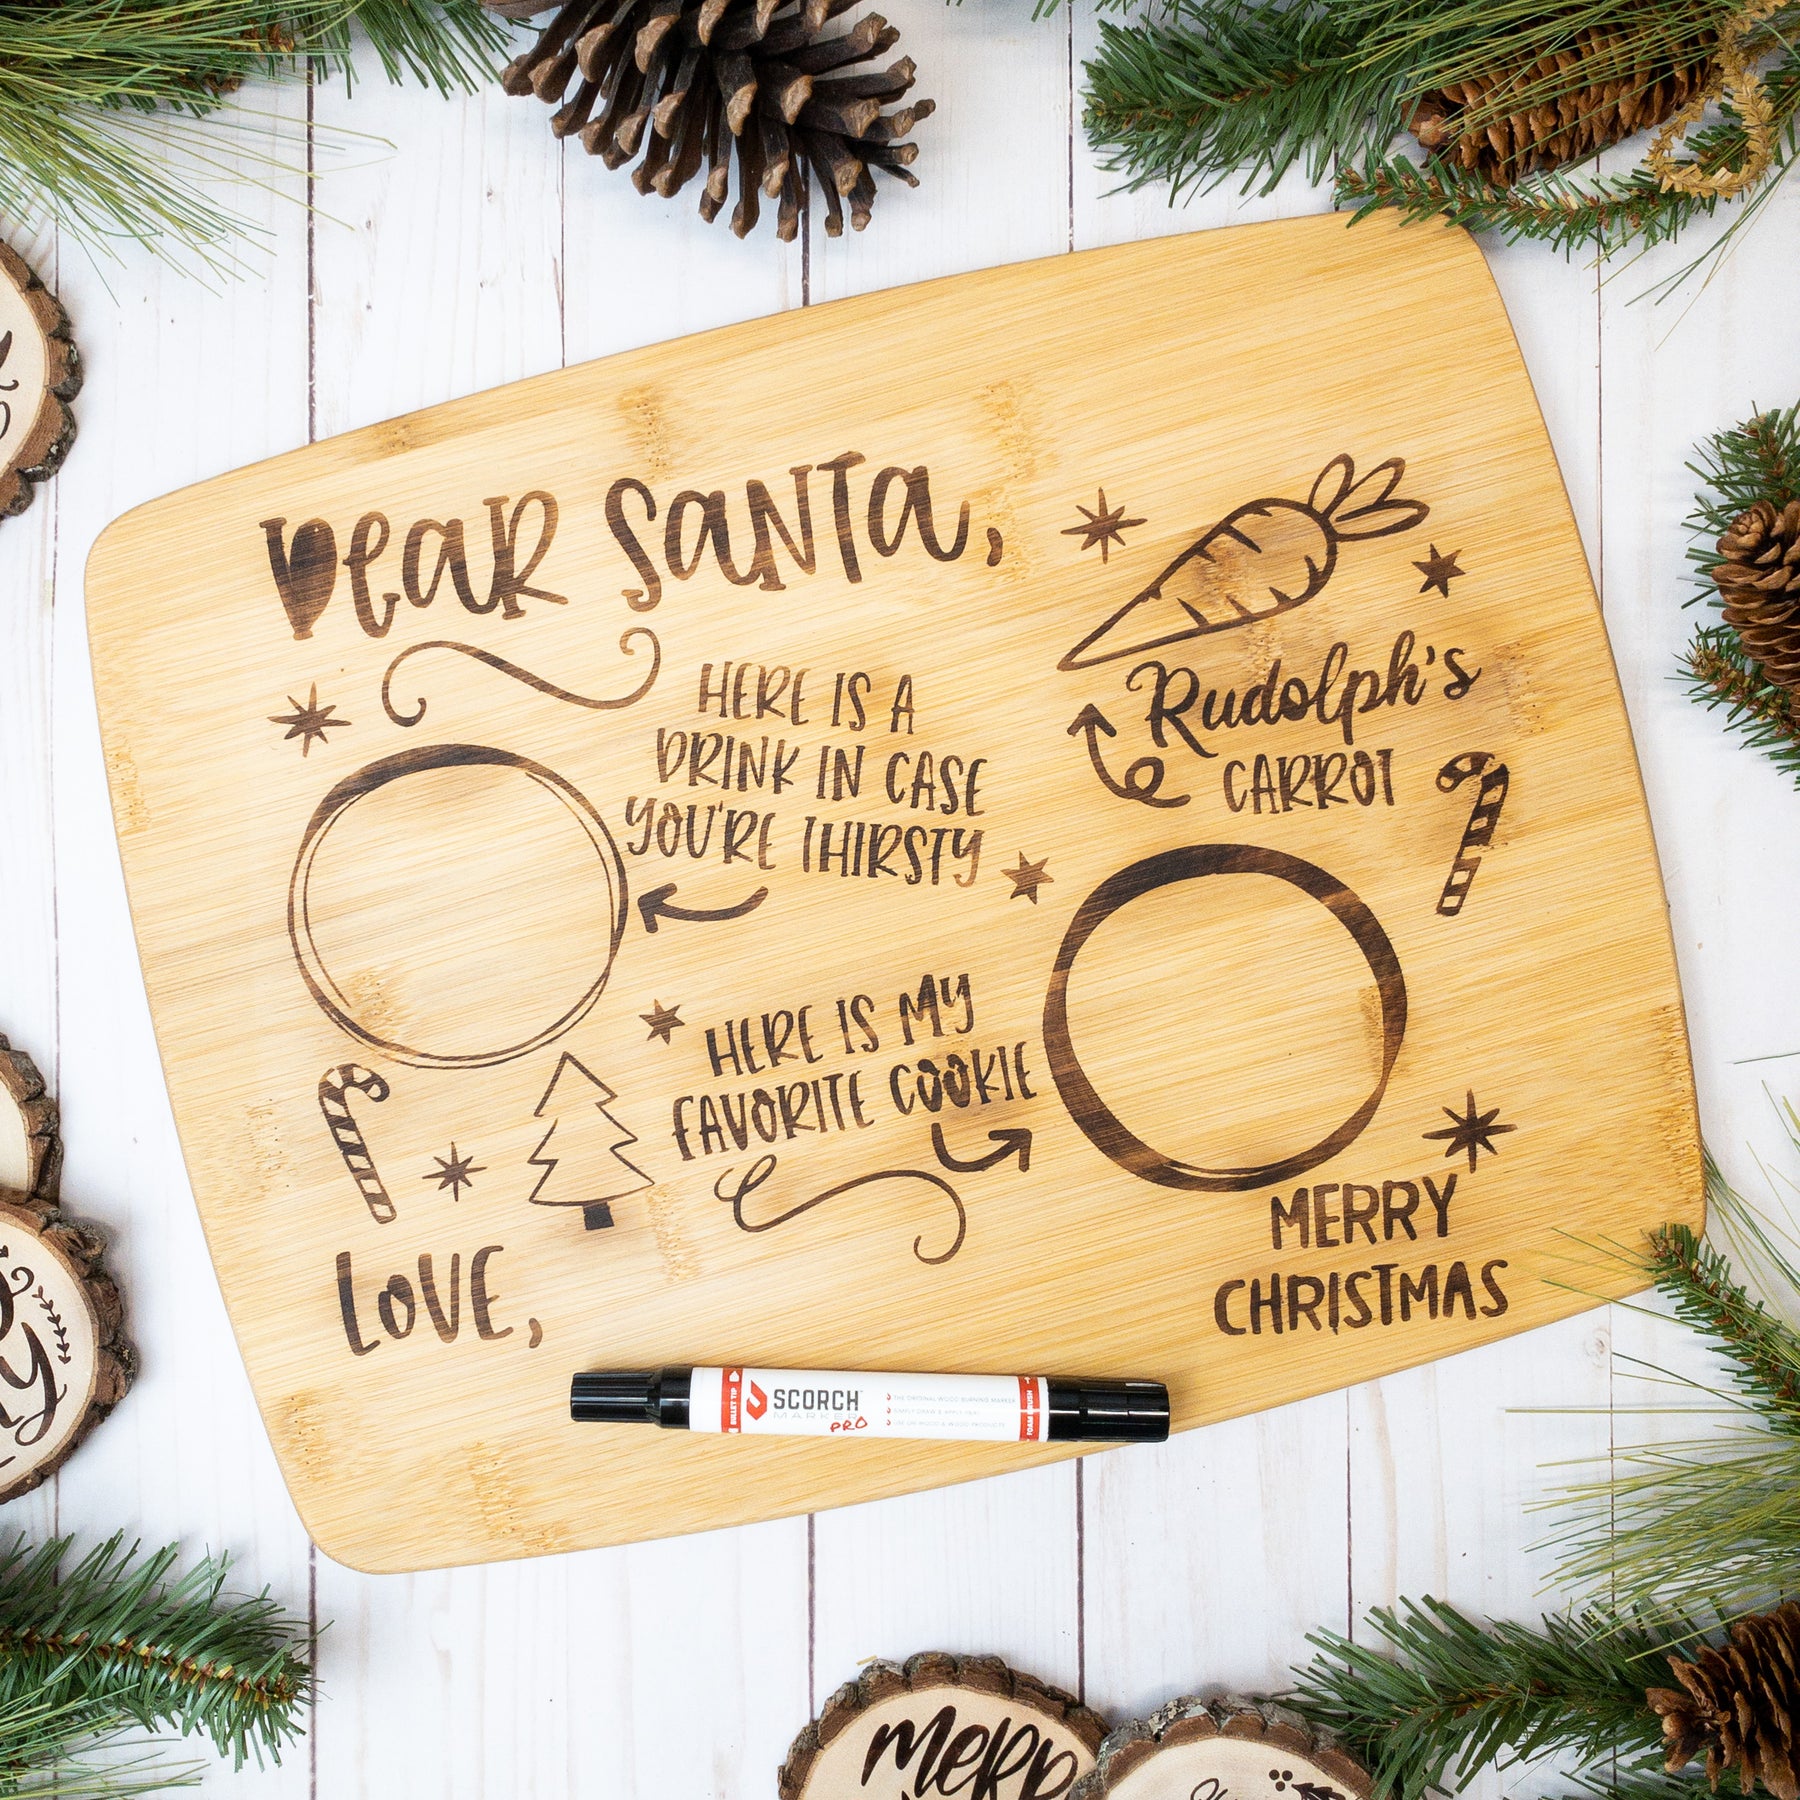 DEAR SANTA,
HERE IS A
DRINK IN CASE
YOU'RE THIRSTY
Rudolph's
CARROT
HERE IS MY
FAVORITE COOKIE
LOVE,
MERRY
CHRISTMAS
BULLET TIP
SCORCH
MARKER
PRO
THE ORIGINAL WOOD BURNING MARKER
SIMPLY DRAW & APPLY HEAT
USE ON WOOD & WOOD PRODUCTS
FOAM BRUSH